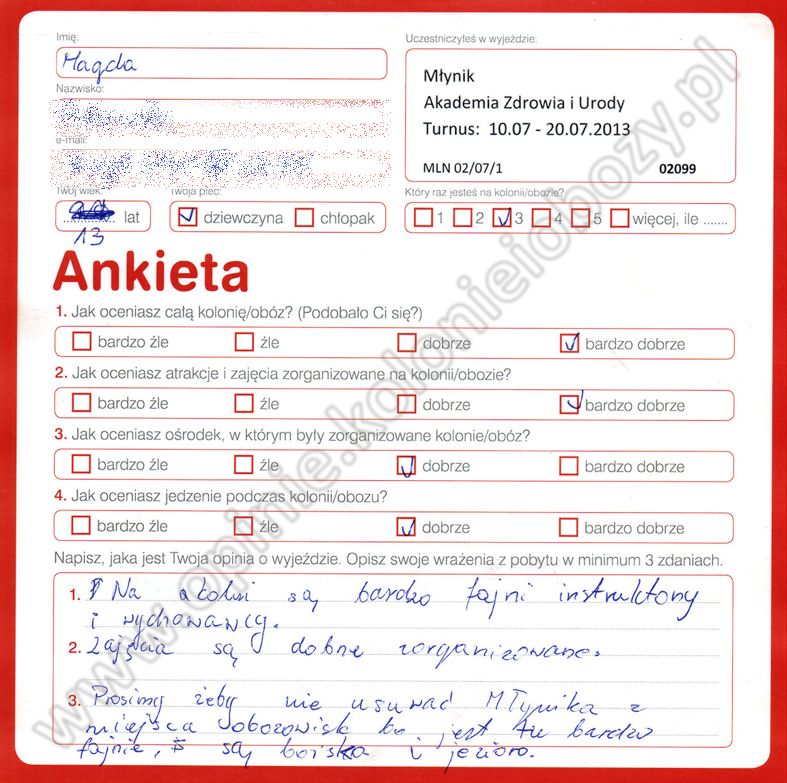 Imię:
Magda
Nazwisko:
e-mail:
Twój wiek:
lat
13
Twoja płeć:
dziewczyna chłopak
Uczestniczyłeś w wyjeździe:
Młynik
Akademia Zdrowia i Urody
Turnus: 10.07 - 20.07.2013
MLN 02/07/1 02099
Który raz jesteś na kolonii/obozie?
1 2 3 4 5 więcej, ile .......
Ankieta
1. Jak oceniasz całą kolonię/obóz? (Podobało Ci się?)
bardzo źle źle dobrze bardzo dobrze
2. Jak oceniasz atrakcje i zajęcia zorganizowane na kolonii/obozie?
bardzo źle źle dobrze bardzo dobrze
3. Jak oceniasz ośrodek, w którym były zorganizowane kolonie/obóz?
bardzo źle źle dobrze bardzo dobrze
4. Jak oceniasz jedzenie podczas kolonii/obozu?
bardzo źle źle dobrze bardzo dobrze
Napisz, jaka jest Twoja opinia o wyjeździe. Opisz swoje wrażenia z pobytu w minimum 3 zdaniach.
1. Na są bardzo fajni instruktorzy
i wychowawcy.
2. Zajęcia są dobrze zorganizowane.
3. Prosimy żeby nie usuwać Młynika z
miejsca obozowisk bo jest tu bardzo
fajnie, są boiska i jezioro.
www.opinie.kolonieiobozy.pl